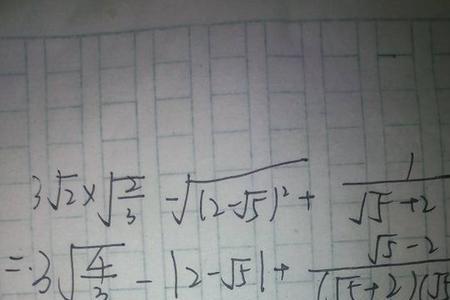 3√2×√(2/3) -√((2-√5)²) + 1/(√5+2)
=3√(4/3) - |2-√5| + (√5-2)/((√5+2)(√5